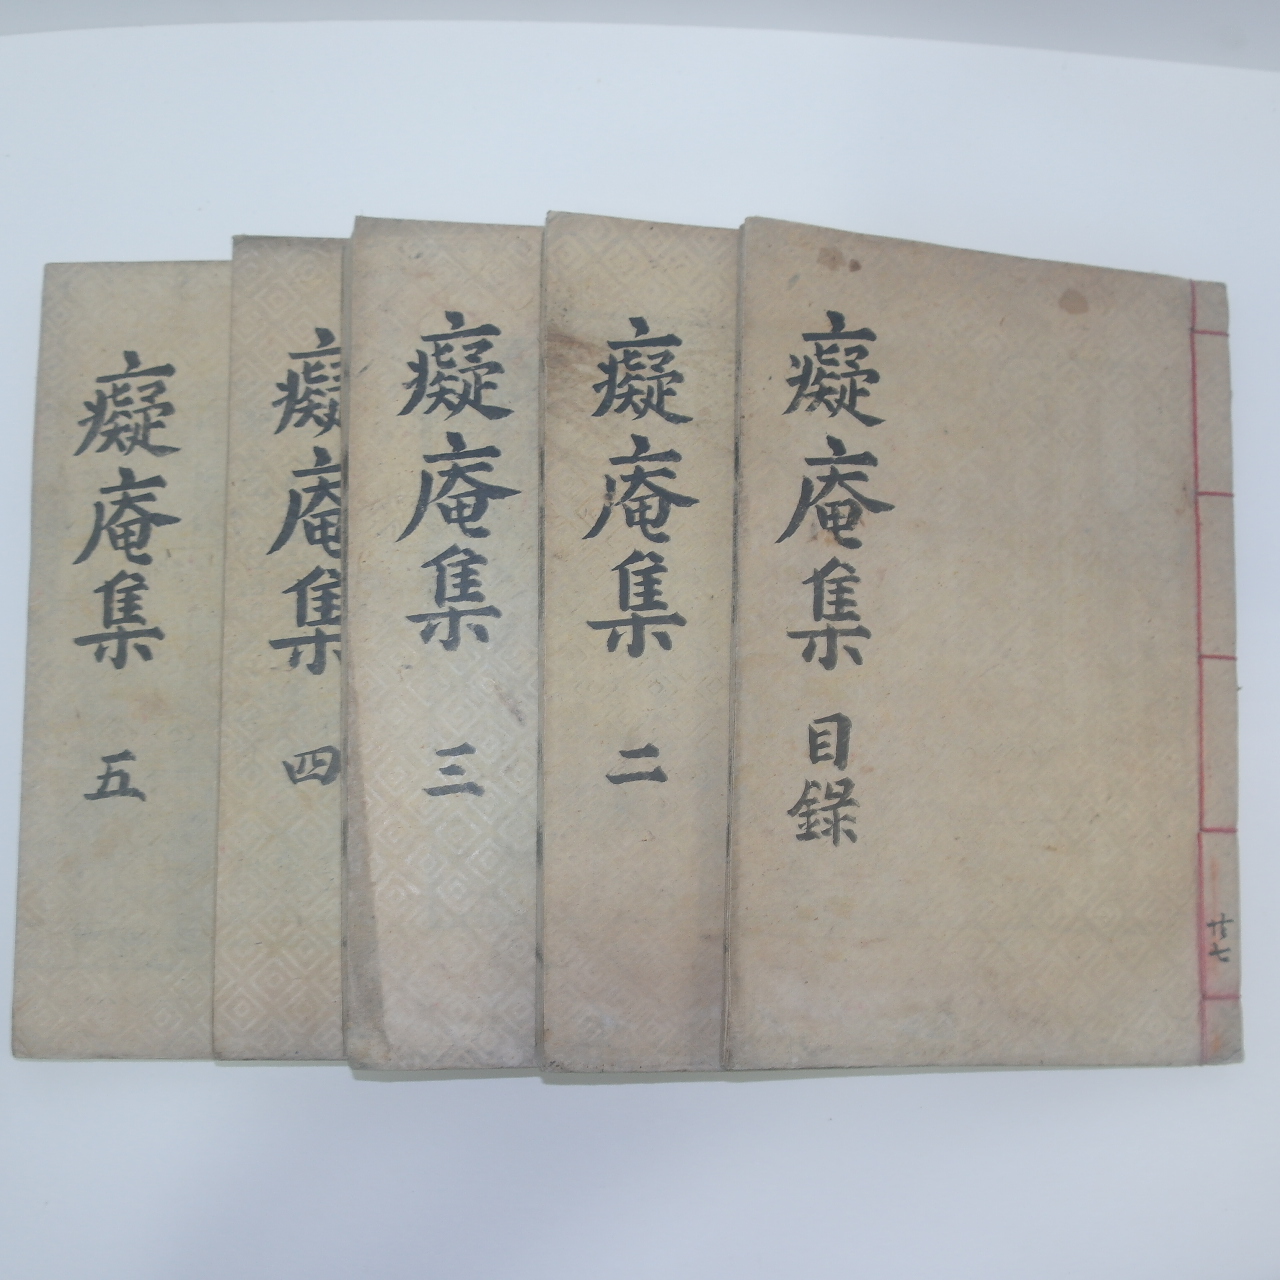 癡庵集 目錄
癡庵集 二
癡庵集 三
癡庵集 四
癡庵集 五
廿七